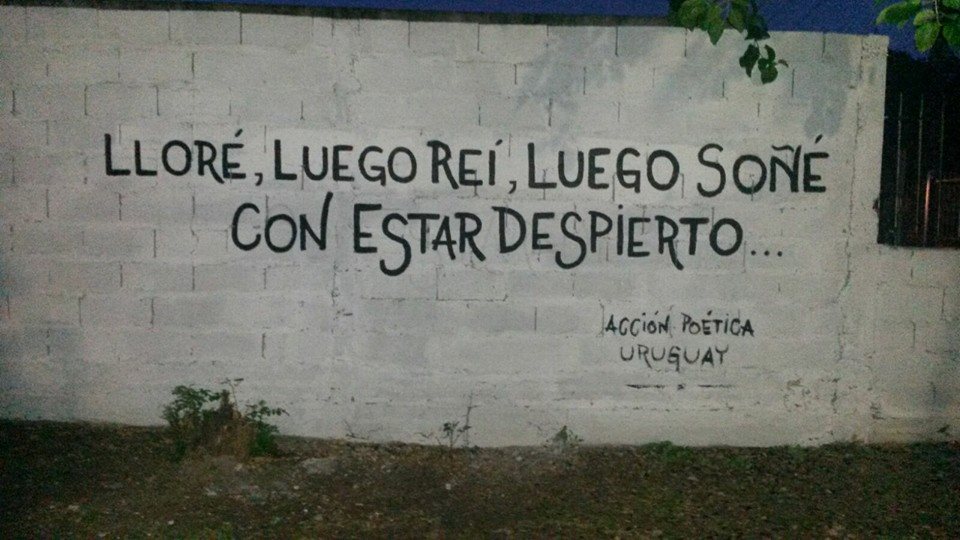 LLORÉ, LUEGO REÍ, LUEGO SOÑÉ
CON ESTAR DESPIERTO...
ACCIÓN POÉTICA
URUGUAY